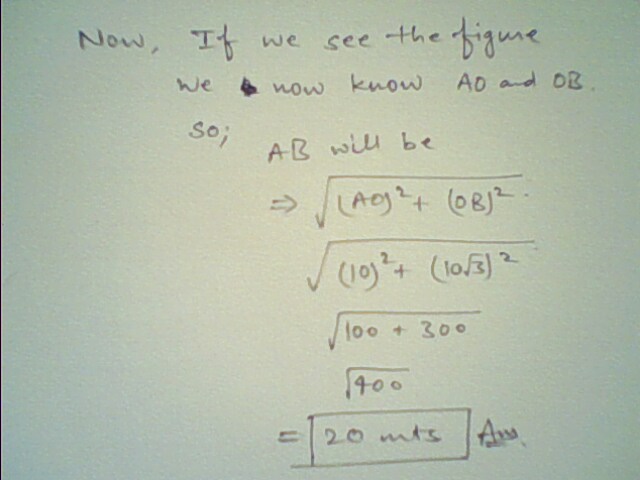 Now, If we see the figure
We now know AO and OB.
So;
AB will be
⇒ √(AO)² + (OB)²
√(10)² + (10√3)²
√100 + 300
√400
= 20 mts Ans.